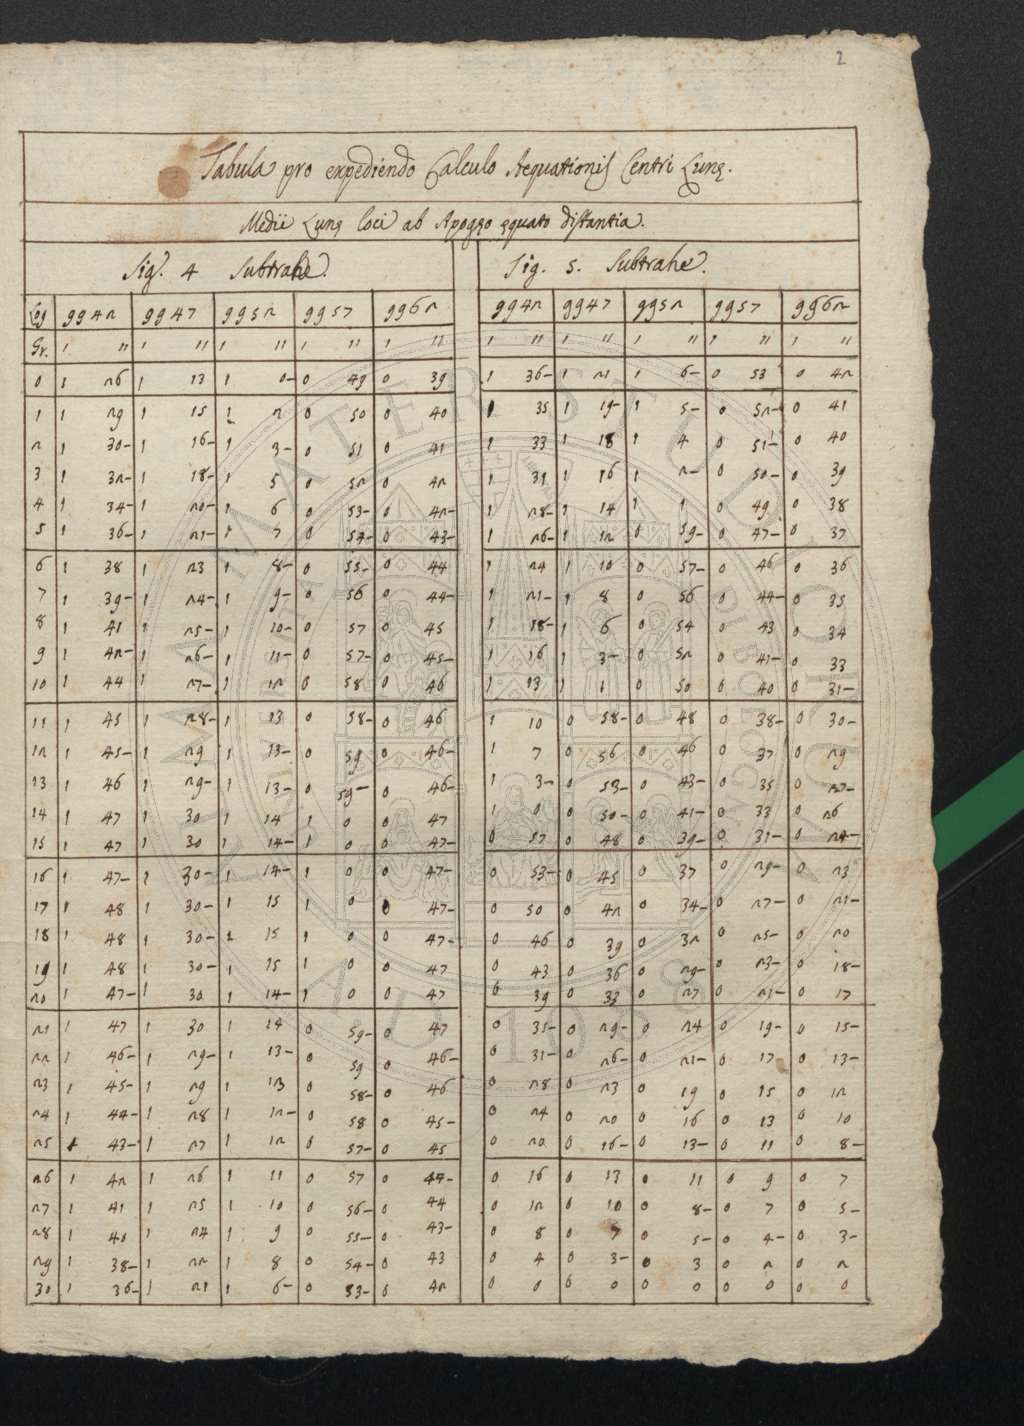 2
Tabula pro expediendo Calculo Aequationis Centri Lunę.
Medii Lunę loci ab Apogęo ęquato distantia.
Sig. 4 Subtrahe. Sig. 5. Subtrahe.
Log 9942 9947 9952 9957 9962 9942 9947 9952 9957 9962
Gr. ' '' ' '' ' '' ' '' ' '' ' '' ' '' ' '' ' '' ' ''
0 1 26 1 13 1 0- 0 49 0 39 1 36- 1 21 1 6- 0 53 0 42
1 1 29 1 15 1 2 0 50 0 40 1 35 1 19- 1 5- 0 52- 0 41
2 1 30- 1 16- 1 3- 0 51 0 41 1 33 1 18 1 4 0 51- 0 40
3 1 32- 1 18- 1 5 0 52 0 42 1 31 1 16 1 2- 0 50- 0 39
4 1 34- 1 20- 1 6 0 53- 0 42- 1 28- 1 14 1 1 0 49 0 38
5 1 36- 1 21- 1 7 0 54- 0 43- 1 26- 1 12 0 59- 0 47- 0 37
6 1 38 1 23 1 8- 0 55- 0 44 1 24 1 10 0 57- 0 46 0 36
7 1 39- 1 24- 1 9- 0 56 0 44- 1 21- 1 8 0 56 0 44- 0 35
8 1 41 1 25- 1 10- 0 57 0 45 1 18- 1 6 0 54 0 43 0 34
9 1 42- 1 26- 1 11- 0 57- 0 45- 1 16 1 3- 0 52 0 41- 0 33
10 1 44 1 27- 1 12 0 58 0 46 1 13 1 1 0 50 0 40 0 31-
11 1 45 1 28- 1 13 0 58- 0 46 1 10 0 58- 0 48 0 38- 0 30-
12 1 45- 1 29 1 13- 0 59 0 46- 1 7 0 56 0 46 0 37 0 29
13 1 46 1 29- 1 13- 0 59- 0 46- 1 3- 0 53- 0 43- 0 35 0 27-
14 1 47 1 30 1 14 1 0 0 47 1 0 0 50- 0 41- 0 33 0 26
15 1 47 1 30 1 14- 1 0 0 47- 0 57 0 48 0 39- 0 31- 0 24-
16 1 47- 1 30- 1 14- 1 0 0 47- 0 53- 0 45 0 37 0 29- 0 23
17 1 48 1 30- 1 15 1 0 0 47- 0 50 0 42 0 34- 0 27- 0 21-
18 1 48 1 30- 1 15 1 0 0 47- 0 46 0 39 0 32 0 25- 0 20
19 1 48 1 30- 1 15 1 0 0 47 0 43 0 36 0 29- 0 23- 0 18-
20 1 47- 1 30 1 14- 1 0 0 47 0 39 0 33 0 27 0 21- 0 17
21 1 47 1 30 1 14 0 59- 0 47 0 35- 0 29- 0 24 0 19- 0 15-
22 1 46- 1 29- 1 13- 0 59 0 46- 0 31- 0 26- 0 21- 0 17 0 13-
23 1 45- 1 29 1 13 0 58- 0 46 0 28 0 23 0 19 0 15 0 12
24 1 44- 1 28 1 12- 0 58 0 45- 0 24 0 20 0 16 0 13 0 10
25 1 43- 1 27 1 12 0 57- 0 45 0 20 0 16- 0 13- 0 11 0 8-
26 1 42 1 26 1 11 0 57 0 44- 0 16 0 13 0 11 0 9 0 7
27 1 41 1 25 1 10 0 56- 0 44 0 12 0 10 0 8- 0 7 0 5-
28 1 40 1 24 1 9 0 55- 0 43- 0 8 0 7 0 5- 0 4- 0 3-
29 1 38- 1 22 1 8 0 54- 0 43 0 4 0 3- 0 3 0 2 0 2
30 1 36- 1 21 1 6- 0 53- 0 42 0 0 0 0 0 0 0 0 0 0
ALMA MATER STUDIORUM
A.D. 1088